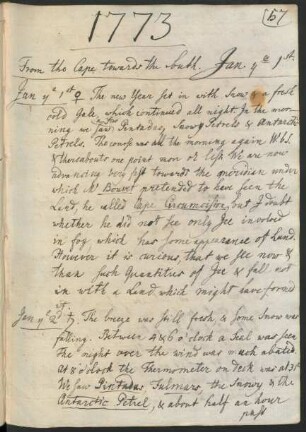 1773
(57
From the Cape towards the South. Jan. yᵉ 1ˢᵗ.
Jan yᵉ 1ˢᵗ ♀. The new Year set in with Snow & a fresh
cold Gale, which continued all night. In the mor-
ning we saw Pintados, Snowy Petrels & Antarctic
Petrels. The course was all the morning again WbS.
& thereabouts one point more or less. We are now
advancing very fast towards the meridian under
which Mʳ Bouvet pretended to have seen the
Land, he called Cape Circumcision, but I doubt
whether he did not see only Ice involved
in fog which has some appearance of Land.
However it is curious, that we see now &
than such Quantities of Ice & fall not
in with a Land which might have formed
it.
Jan yᵉ 2ᵈ ♄. The breeze was still fresh & some Snow was
falling. Between 4 & 6 o'clock a Seal was seen
the night over the wind was much abated.
At 8 o'clock the Thermometer on deck was at
We saw Pintados, Fulmars, the Snowy & the
Antarctic Petrel, & about half an hour
past